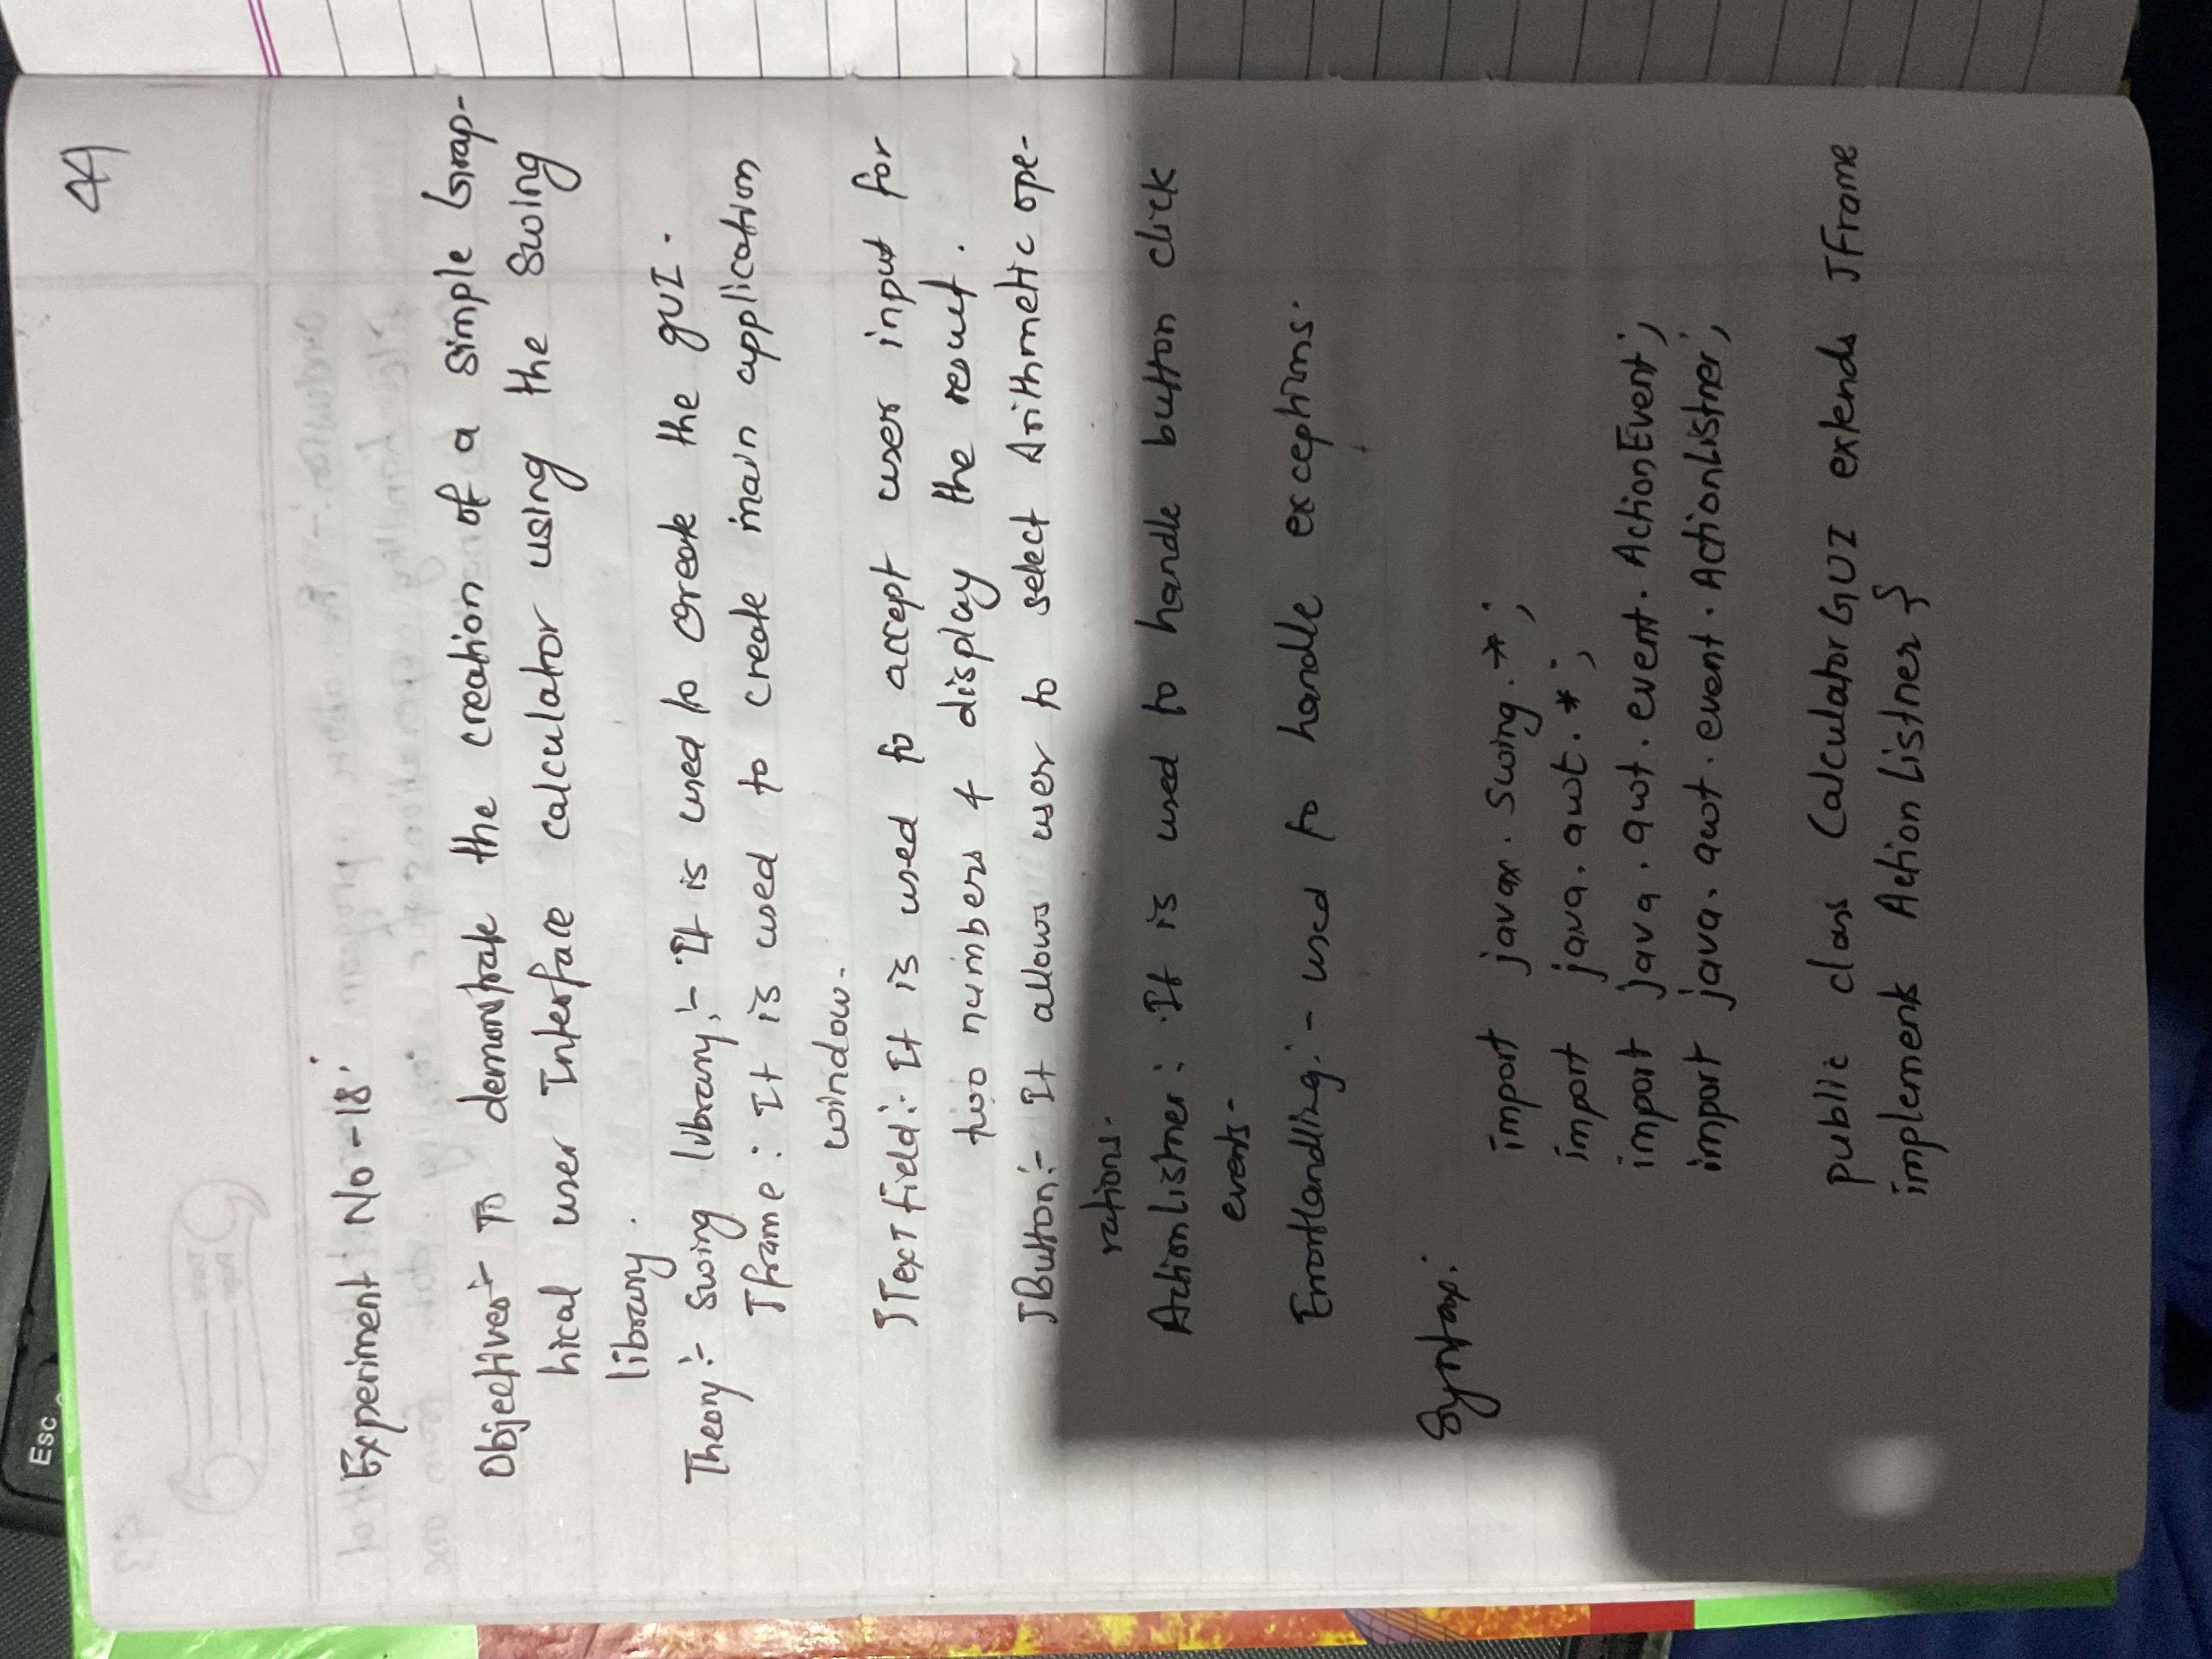 Esc
44
Experiment No -18:
Objectives:- To demonstrate the creation of a simple Grap-
hical user Interface calculator using the Swing
library.
Theory:- Swing library:- It is used to create the GUI.
Jframe: It is used to create main application
window.
JTextField:- It is used to accept user input for
two numbers & display the result.
JButton:- It allows user to select Arithmetic ope-
rations.
ActionListner: It is used to handle button click
events.
ErrorHandling:- used to handle exceptions.
Syntax:
import javax.swing.*;
import java.awt.*;
import java.awt.event.ActionEvent;
import java.awt.event.ActionListner;
public class CalculatorGUI extends JFrame
implements ActionListner {